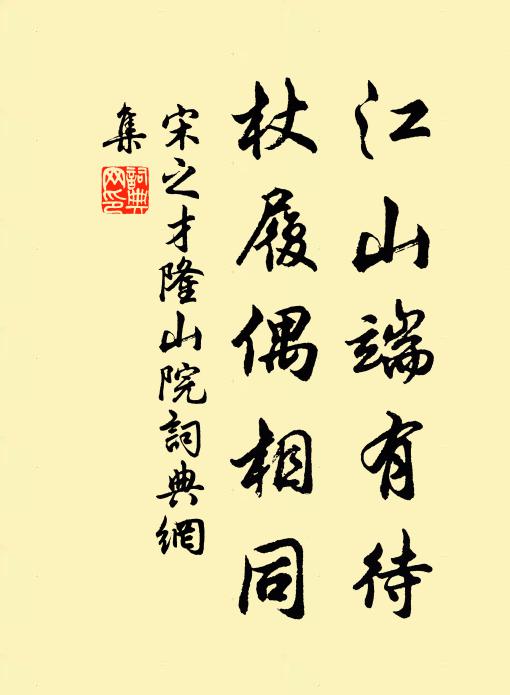 江山端有待
杖履偶相同
宋之才隆山院詞典網
集
詞典網印